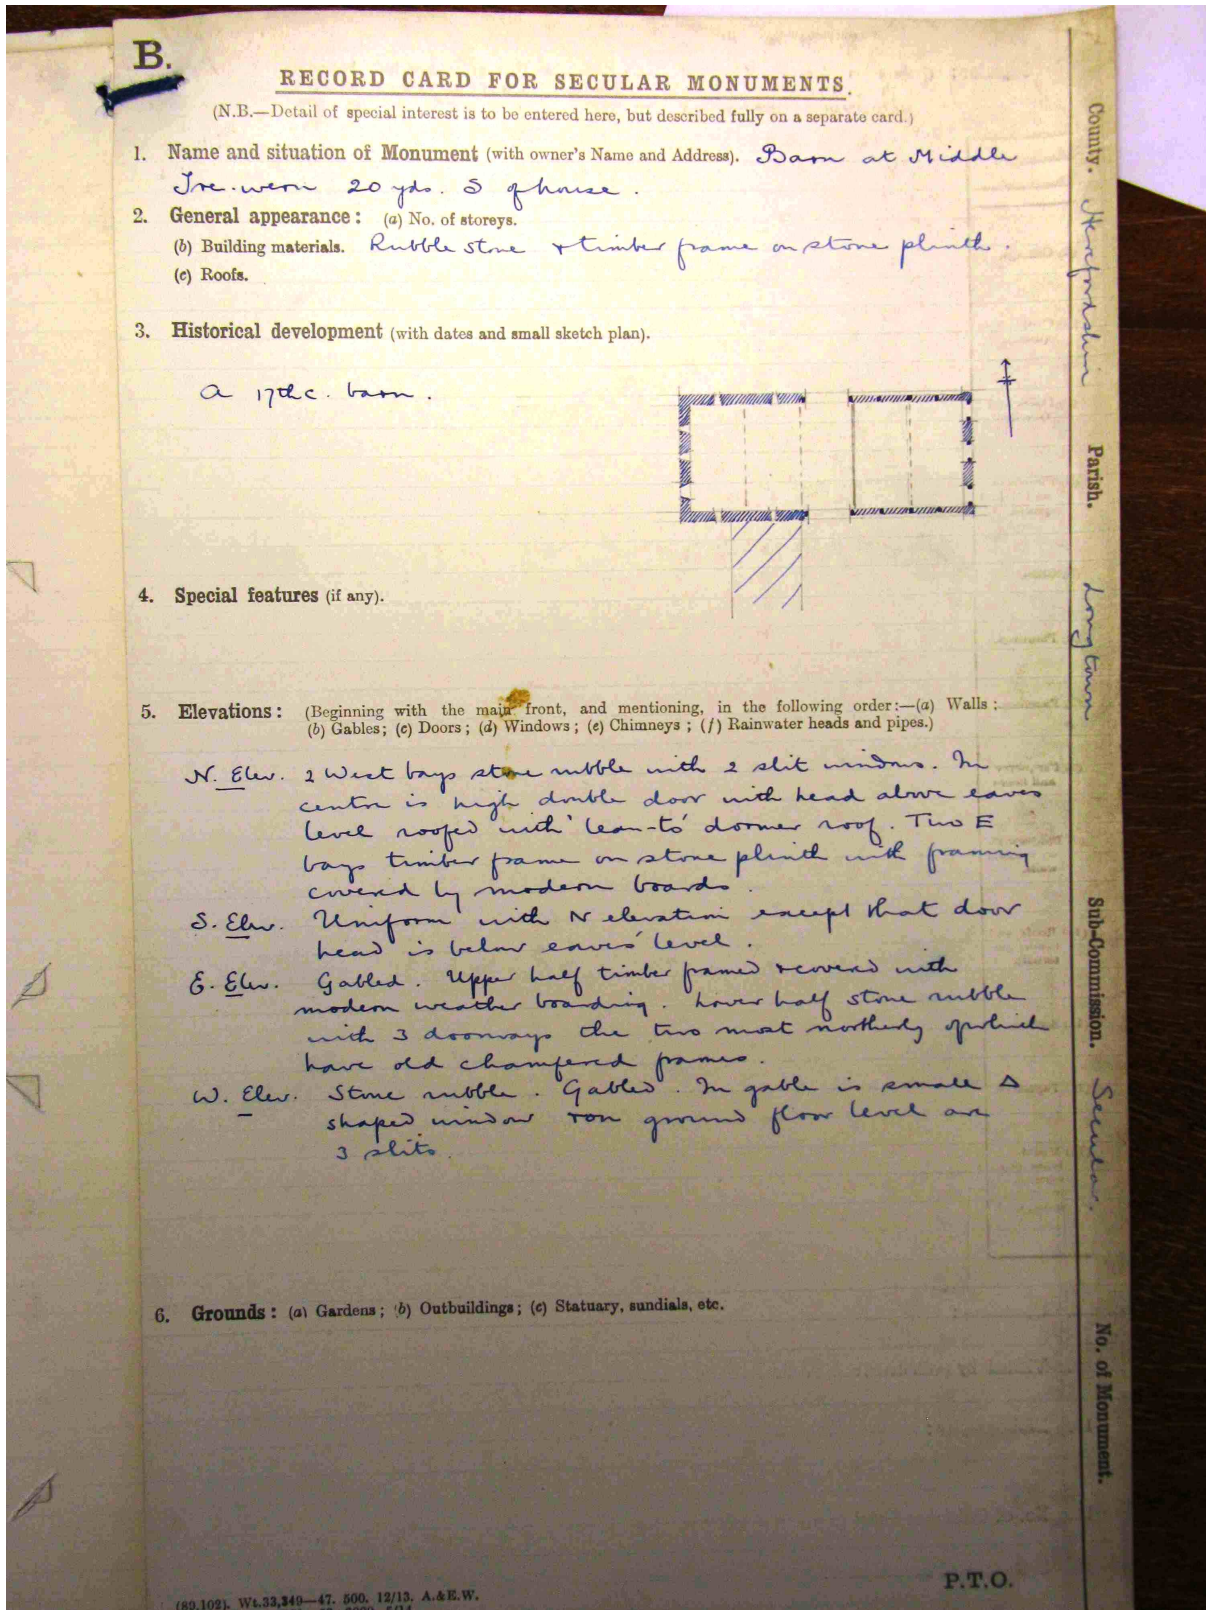 B.
RECORD CARD FOR SECULAR MONUMENTS.
(N.B.—Detail of special interest is to be entered here, but described fully on a separate card.)
1. Name and situation of Monument (with owner's Name and Address). Barn at Middle
Tre-wern 20 yds. S of house.
2. General appearance: (a) No. of storeys.
(b) Building materials. Rubble stone & timber frame on stone plinth.
(c) Roofs.
3. Historical development (with dates and small sketch plan).
A 17th c. barn.
4. Special features (if any).
5. Elevations: (Beginning with the main front, and mentioning, in the following order:—(a) Walls;
(b) Gables; (c) Doors; (d) Windows; (e) Chimneys; (f) Rainwater heads and pipes.)
N. Elev. 2 West bays stone rubble with 2 slit windows. In
centre is high double door with head above eaves
level roofed with 'lean-to' dormer roof. Two E
bays timber frame on stone plinth with framing
covered by modern boards.
S. Elev. Uniform with N elevation except that door
head is below eaves level.
E. Elev. Gabled. Upper half timber framed & covered with
modern weather boarding. Lower half stone rubble
with 3 doorways the two most northerly of which
have old chamfered frames.
W. Elev. Stone rubble. Gabled. In gable is small Δ
shaped window & on ground floor level are
3 slits.
6. Grounds: (a) Gardens; (b) Outbuildings; (c) Statuary, sundials, etc.
P.T.O.
(89,102). Wt.33,349—47. 500. 12/13. A.&E.W.
County. Herefordshire
Parish. Longtown
Sub-Commission. Secular.
No. of Monument.